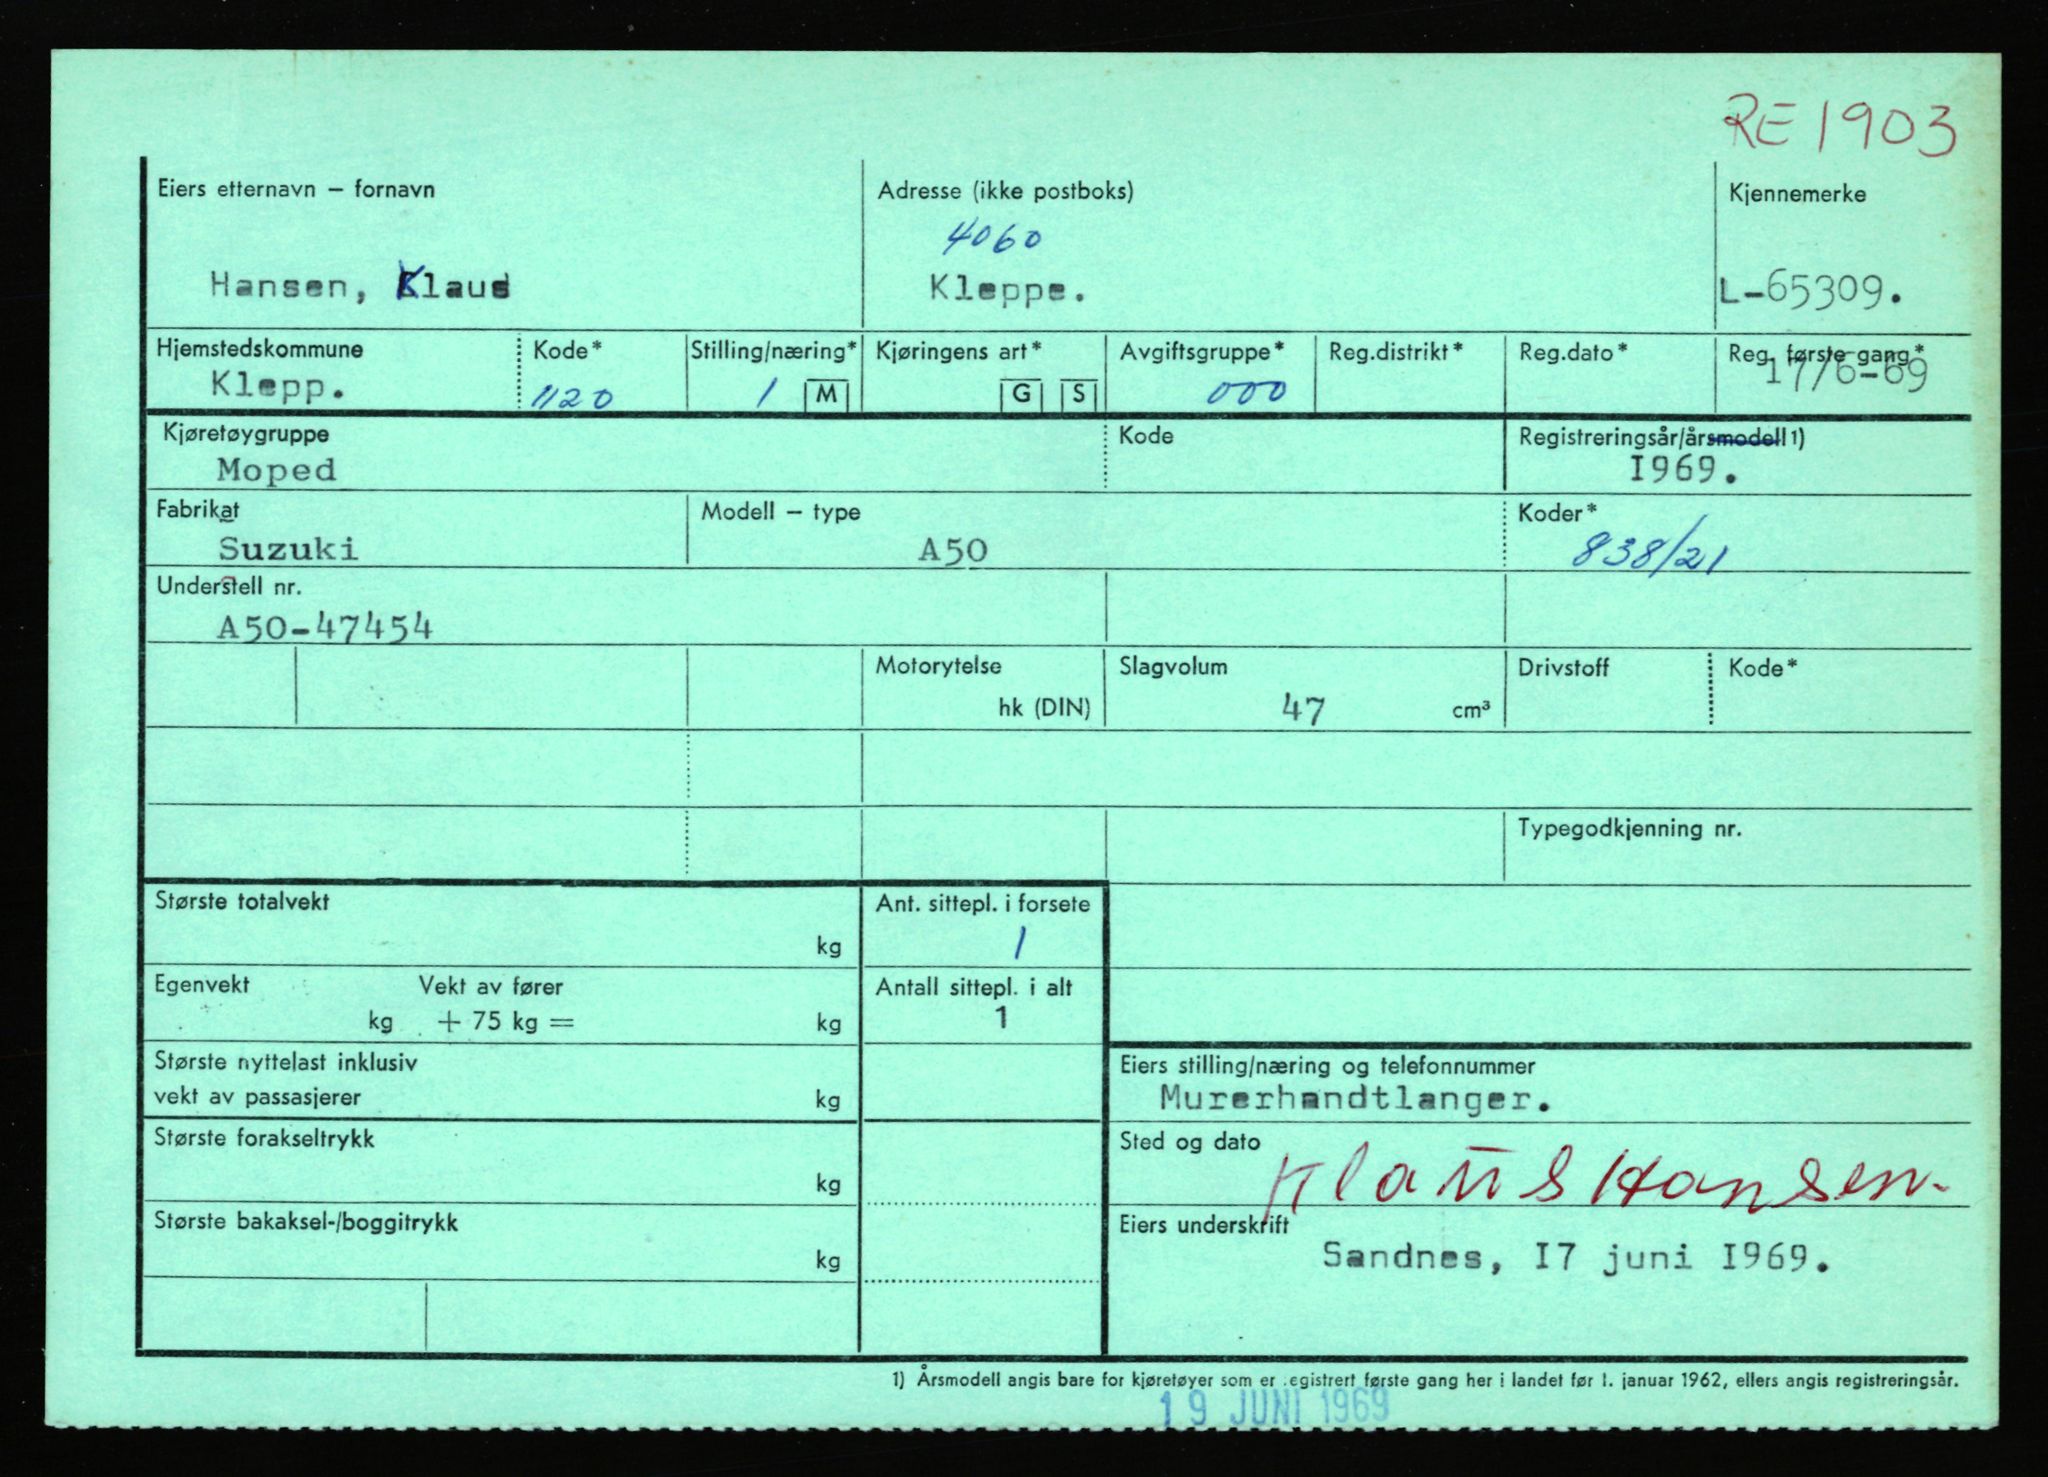 RE 1903
Eiers etternavn – fornavn
Adresse (ikke postboks)
Kjennemerke
4060
Hansen, Klaus
Kleppe.
L-65309.
Hjemstedskommune
Kode*
Stilling/næring*
Kjøringens art*
Avgiftsgruppe*
Reg.distrikt*
Reg.dato*
Reg. første gang*
Klepp.
1120
1 M
G S
000
17/6-69
Kjøretøygruppe
Kode
Registreringsår/årsmodell 1)
Moped
I969.
Fabrikat
Modell – type
Koder*
Suzuki
A50
838/21
Understell nr.
A50-47454
Motorytelse
Slagvolum
Drivstoff
Kode*
hk (DIN)
47 cm³
Typegodkjenning nr.
Største totalvekt
kg
Ant. sittepl. i forsete
1
Egenvekt
Vekt av fører
kg + 75 kg = kg
Antall sittepl. i alt
1
Største nyttelast inklusiv
vekt av passasjerer kg
Eiers stilling/næring og telefonnummer
Murerhandtlanger.
Største forakseltrykk
kg
Sted og dato
Klaus Hansen.
Største bakaksel-/boggitrykk
kg
Eiers underskrift
Sandnes, I7 juni I969.
1) Årsmodell angis bare for kjøretøyer som er registrert første gang her i landet før 1. januar 1962, ellers angis registreringsår.
19 JUNI 1969